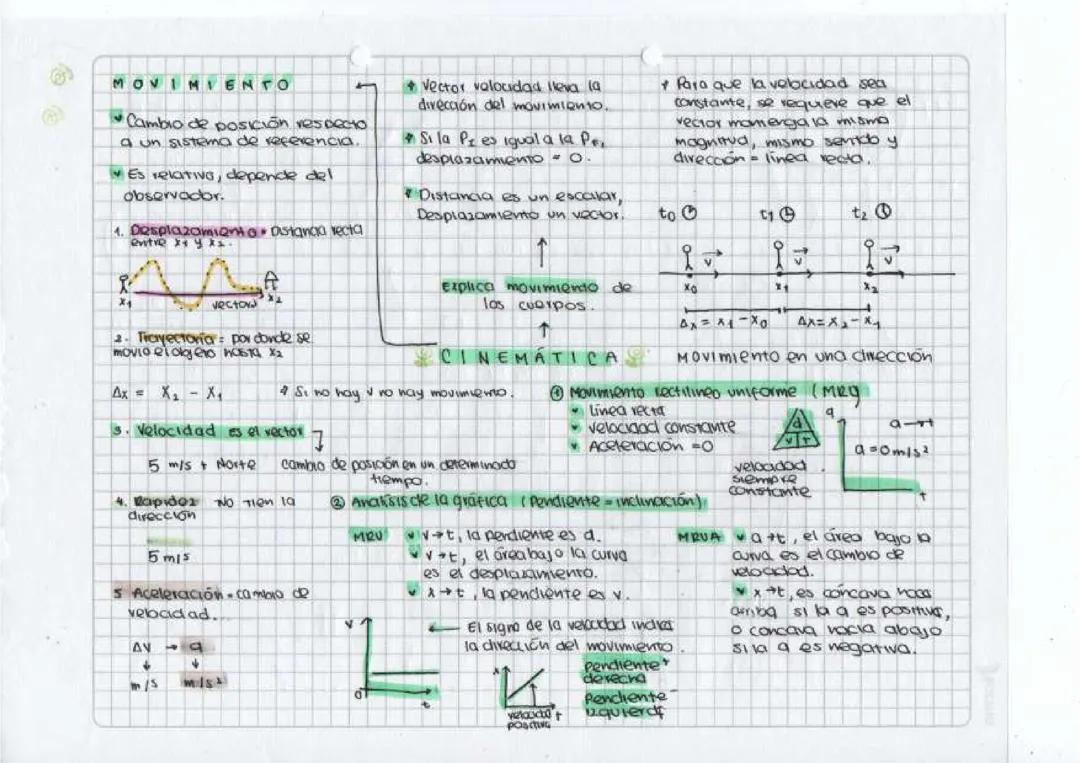 MOVIMIENTO
Cambio de posición respecto
a un sistema de referencia.
Es relativo, depende del
observador.
1. Desplazamiento = Distancia recta
entre x1 y x2.
x1 vector x2
2. Trayectoria = por donde se
movió el objeto hasta x2
Δx = X2 - X1
* Si no hay v no hay movimiento.
3. Velocidad es el vector
5 m/s + Norte
cambio de posición en un determinado
tiempo.
4. Rapidez No tien la
dirección
5 m/s
5 Aceleración = cambio de
velocidad...
Δv → a
m/s m/s²
* Vector velocidad lleva la
dirección del movimiento.
* Si la PI es igual a la PF,
desplazamiento = 0.
* Distancia es un escalar,
Desplazamiento un vector.
Explica movimiento de
los cuerpos.
CINEMÁTICA
* Para que la velocidad sea
constante, se requiere que el
vector mantenga la misma
magnitud, mismo sentido y
dirección = línea recta.
t0 t1 t2
v v v
x0 x1 x2
Δx = x1 - x0 Δx = x2 - x1
Movimiento en una dirección
① Movimiento rectilineo uniforme (MRU)
Línea recta
velocidad constante
Aceleración = 0
d
v t
velocidad
siempre
constante
a
a→t
a = 0 m/s²
t
② Analisis de la gráfica (Pendiente = inclinación)
MRU
v→t, la pendiente es a.
v→t, el área bajo la curva
es el desplazamiento.
x→t, la pendiente es v.
v
0
t
← El signo de la velocidad indica
la dirección del movimiento.
x
t
velocidad
positiva
pendiente +
derecha
Pendiente -
izquierda
MRUA
a→t, el área bajo la
curva es el cambio de
velocidad.
x→t, es cóncava hacia
arriba si la a es positiva,
o concava hacia abajo
si la a es negativa.